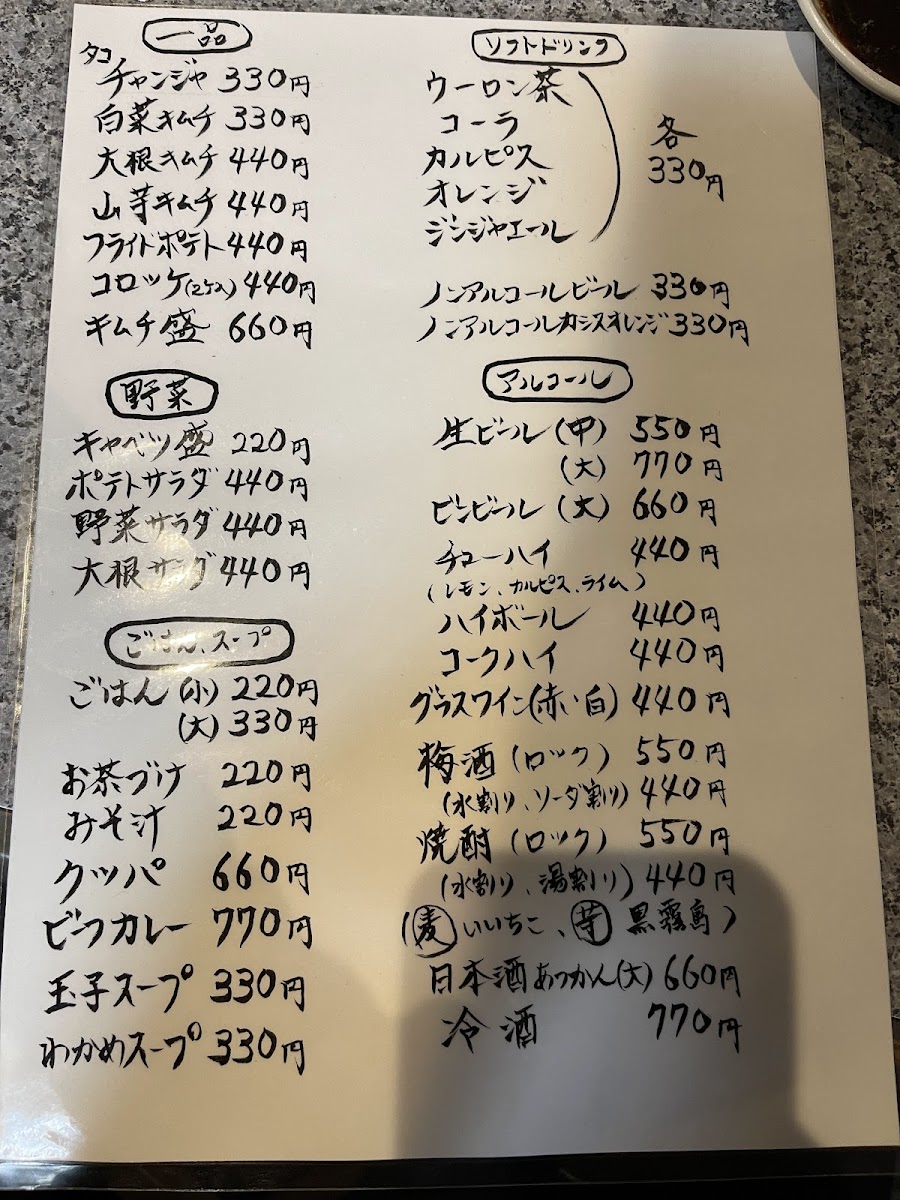 一品
タコ
チャンジャ 330円
白菜キムチ 330円
大根キムチ 440円
山芋キムチ 440円
フライドポテト 440円
コロッケ(2ケ入) 440円
キムチ盛 660円
野菜
キャベツ盛 220円
ポテトサラダ 440円
野菜サラダ 440円
大根サラダ 440円
ごはん、スープ
ごはん (小) 220円
(大) 330円
お茶づけ 220円
みそ汁 220円
クッパ 660円
ビーフカレー 770円
玉子スープ 330円
わかめスープ 330円
ソフトドリンク
ウーロン茶
コーラ
カルピス
オレンジ
ジンジャエール
各
330円
ノンアルコールビール 330円
ノンアルコールカシスオレンジ 330円
アルコール
生ビール (中) 550円
(大) 770円
ビンビール (大) 660円
チューハイ 440円
(レモン、カルピス、ライム)
ハイボール 440円
コークハイ 440円
グラスワイン(赤い白) 440円
梅酒 (ロック) 550円
(水割り、ソーダ割り) 440円
焼酎 (ロック) 550円
(水割り、湯割り) 440円
(麦 いいちこ、芋 黒霧島)
日本酒 あつかん(大) 660円
冷酒 770円